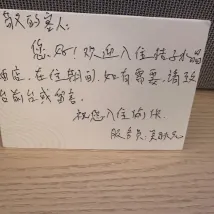 尊敬的客人:
您好!欢迎入住桔子水晶
酒店,在住期间,如有需要,请致
电前台或留言。
祝您入住愉快。
服务员: